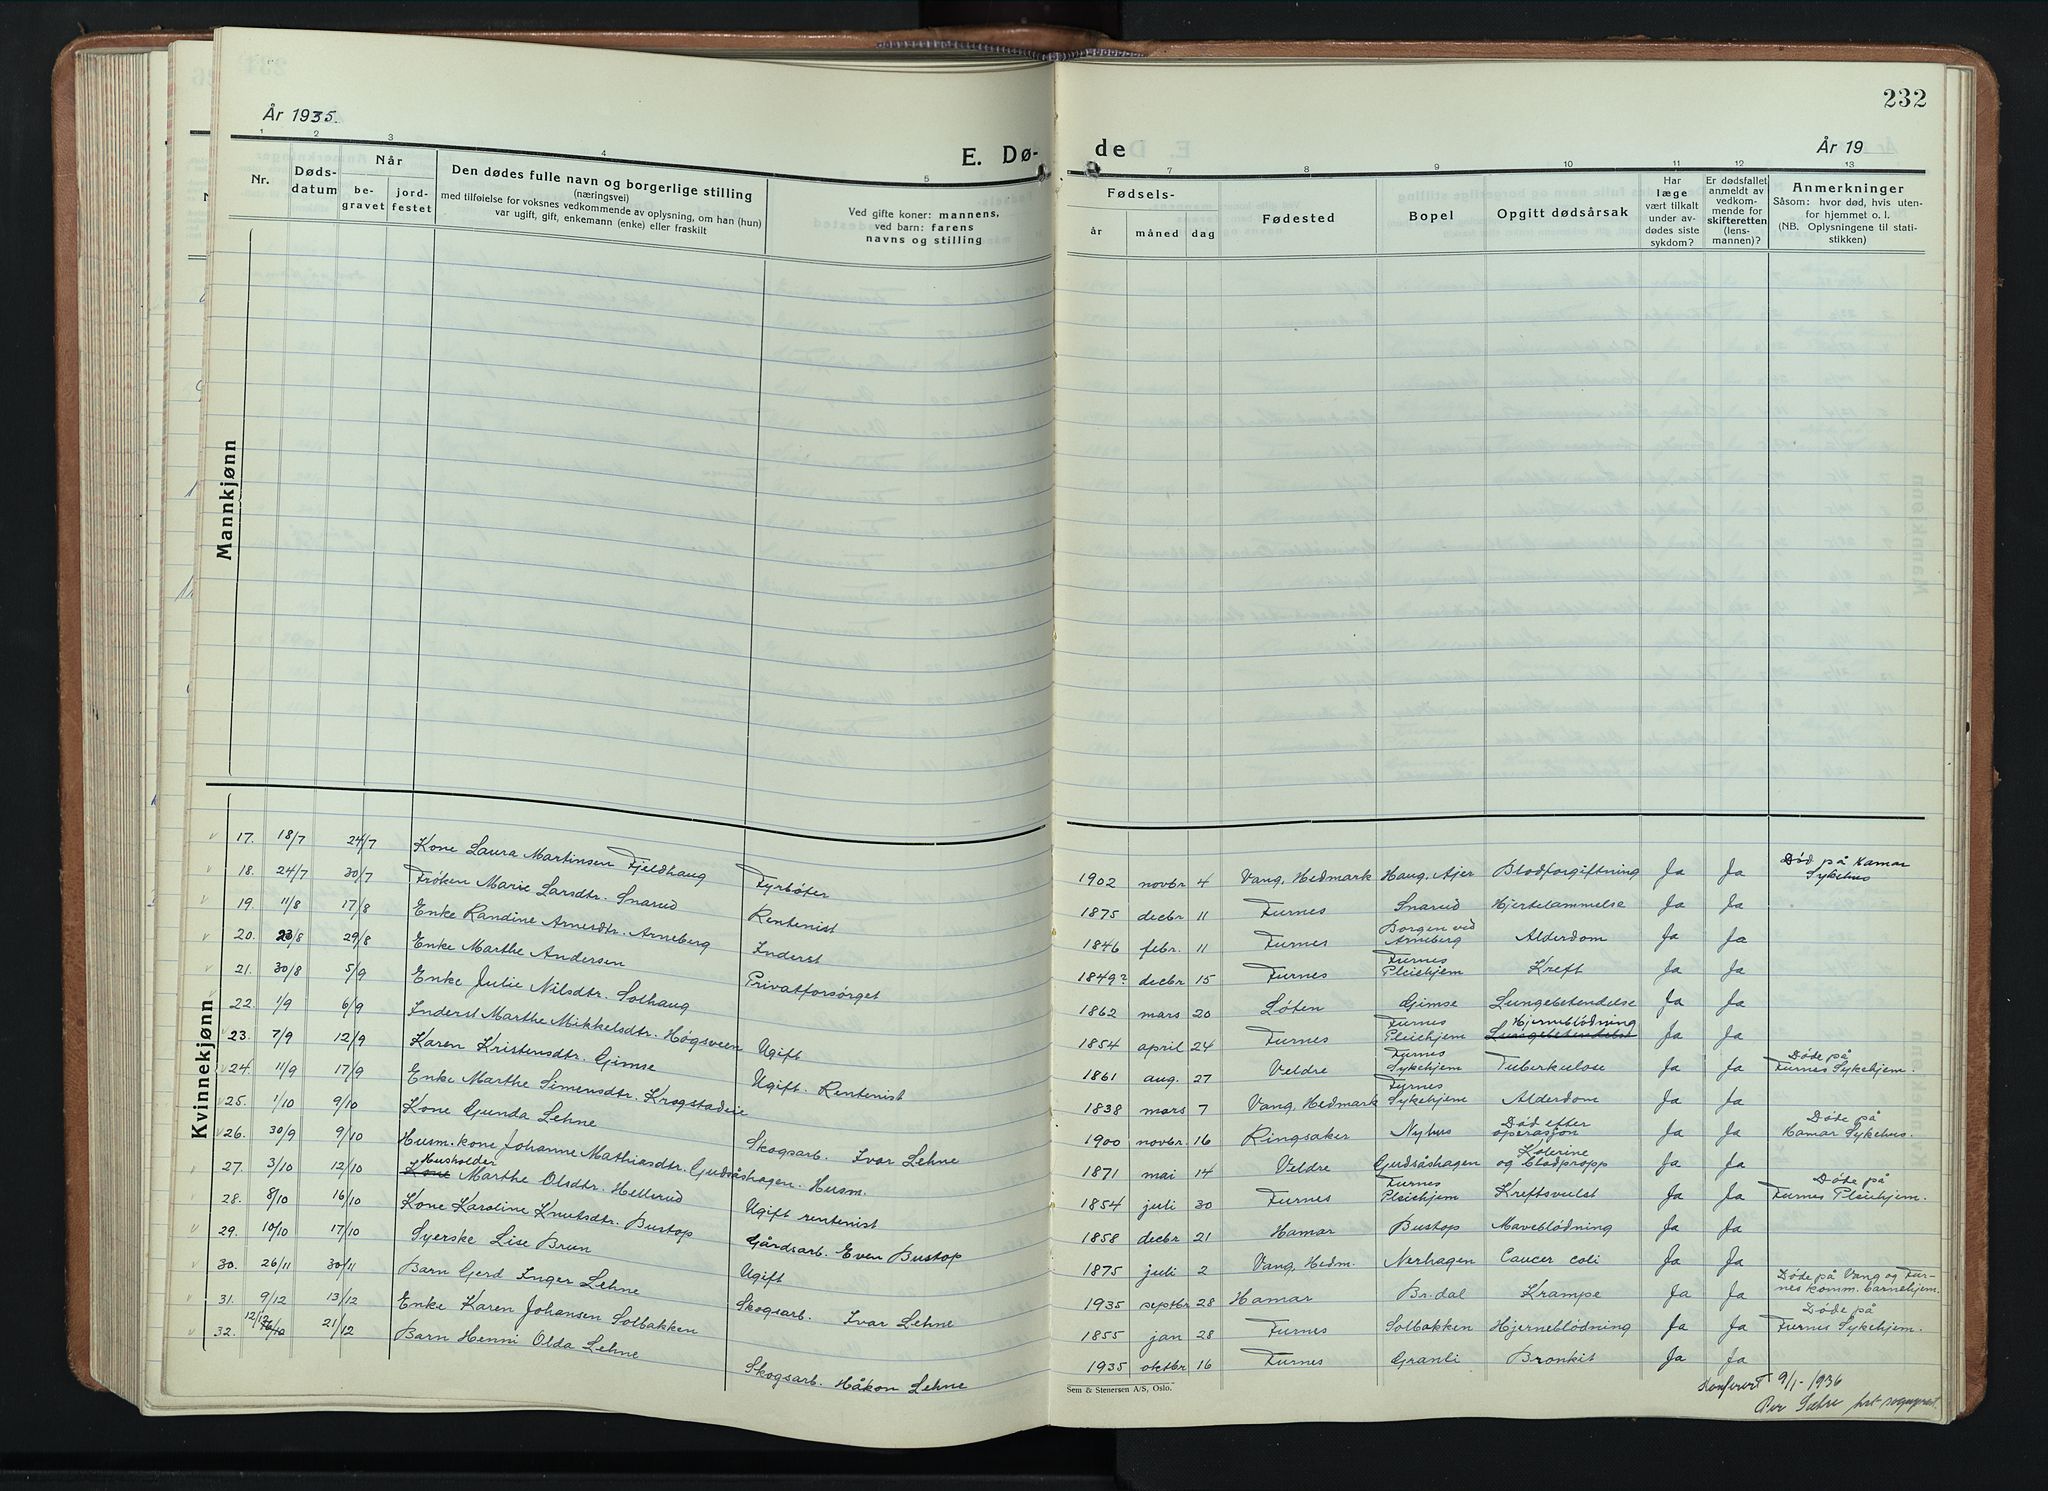 232
År 1935.
E. Dø-
de
År 19
1 2 3 4 5 7 8 9 10 11 12 13
Nr.
Døds-
datum
Når
be-
gravet
jord-
festet
Den dødes fulle navn og borgerlige stilling
(næringsvei)
med tilføielse for voksnes vedkommende av oplysning, om han (hun)
var ugift, gift, enkemann (enke) eller fraskilt
Ved gifte koner: mannens,
ved barn: farens
navns og stilling
Fødsels-
år måned dag
Fødested
Bopel
Opgitt dødsårsak
Har
læge
vært tilkalt
under av-
dødes siste
sykdom?
Er dødsfallet
anmeldt av
vedkom-
mende for
skifteretten
(lens-
mannen)?
Anmerkninger
Såsom: hvor død, hvis uten-
for hjemmet o. l.
(NB. Oplysningene til stati-
stikken)
Mannkjønn
Kvinnekjønn
17. 18/7 24/7 Kone Laura Martinsen Fjeldhaug Fyrbøter 1902 novbr 4 Vang, Hedmark Haug, Ajer Blodforgiftning Ja Ja Død på Hamar Sykehus
18. 24/7 30/7 Frøken Marie Larsdtr. Snarud Rentenist 1875 decbr 11 Furnes Snarud Hjertelammelse Ja Ja
19. 11/8 17/8 Enke Randine Arnesdtr. Arneberg Inderst 1846 febr. 11 Furnes Borgen ved Arneberg Alderdom Ja Ja
20. 23/8 29/8 Enke Marthe Andersen Privatforsørget 1849? decbr 15 Furnes Furnes Pleiehjem Kreft Ja Ja
21. 30/8 5/9 Enke Julie Nilsdtr. Solhaug 1862 mars 20 Løten Gimse Lungebetendelse Ja Ja
22. 1/9 6/9 Inderst Marthe Mikkelsdtr. Høgsveen Ugift 1854 april 24 Furnes Furnes Pleiehjem Hjerneblødning Lungebetendelse Ja Ja
23. 7/9 12/9 Karen Kristensdtr. Gimse Ugift. Rentenist 1861 aug. 27 Veldre Furnes Sykehjem Tuberkulose Ja Ja Døde på Furnes Sykehjem.
24. 11/9 17/9 Enke Marthe Simensdtr. Krogstadeie 1838 mars 7 Vang, Hedmark Furnes Sykehjem Alderdom Ja Ja
25. 1/10 9/10 Kone Gunda Lehne Skogsarb. Ivar Lehne 1900 novbr. 16 Ringsaker Nyhus Død efter operasjon Ja Ja Døde på Hamar Sykehus.
26. 30/9 9/10 Husm. kone Johanne Mathiasdtr. Gudsåshagen. Husm. 1871 mai 14 Veldre Gudsåshagen Kolerine og blodpropp Ja Ja
27. 3/10 12/10 Husholder Kone Marthe Olsdtr. Hellerud Ugift rentenist 1854 juli 30 Furnes Furnes Pleiehjem Kreftsvulst Ja Ja Døde på Furnes Pleiehjem.
28. 8/10 16/10 Kone Karoline Knutsdtr. Bustop Gårdsarb. Even Bustop 1858 decbr 21 Hamar Bustop Maveblødning Ja Ja
29. 10/10 17/10 Syerske Lise Brun Ugift 1875 juli 2 Vang, Hedm. Nerhagen Cancer coli Ja Ja
30. 26/11 30/11 Barn Gerd Inger Lehne Skogsarb. Ivar Lehne 1935 septbr 28 Hamar Br.dal Krampe Ja Ja Døde på Vang og Furnes komm. barnehjem.
31. 9/12 13/12 Enke Karen Johansen Solbakken 1855 jan 28 Furnes Solbakken Hjerneblødning Ja Ja Døde på Furnes Sykehjem.
32. 12/12 21/12 Barn Henni Olda Lehne Skogsarb. Håkon Lehne 1935 oktbr 16 Furnes Granli Bronkit Ja Ja
Sem & Stenersen A/S, Oslo.
Konferert 9/1-1936
Per Sæhre